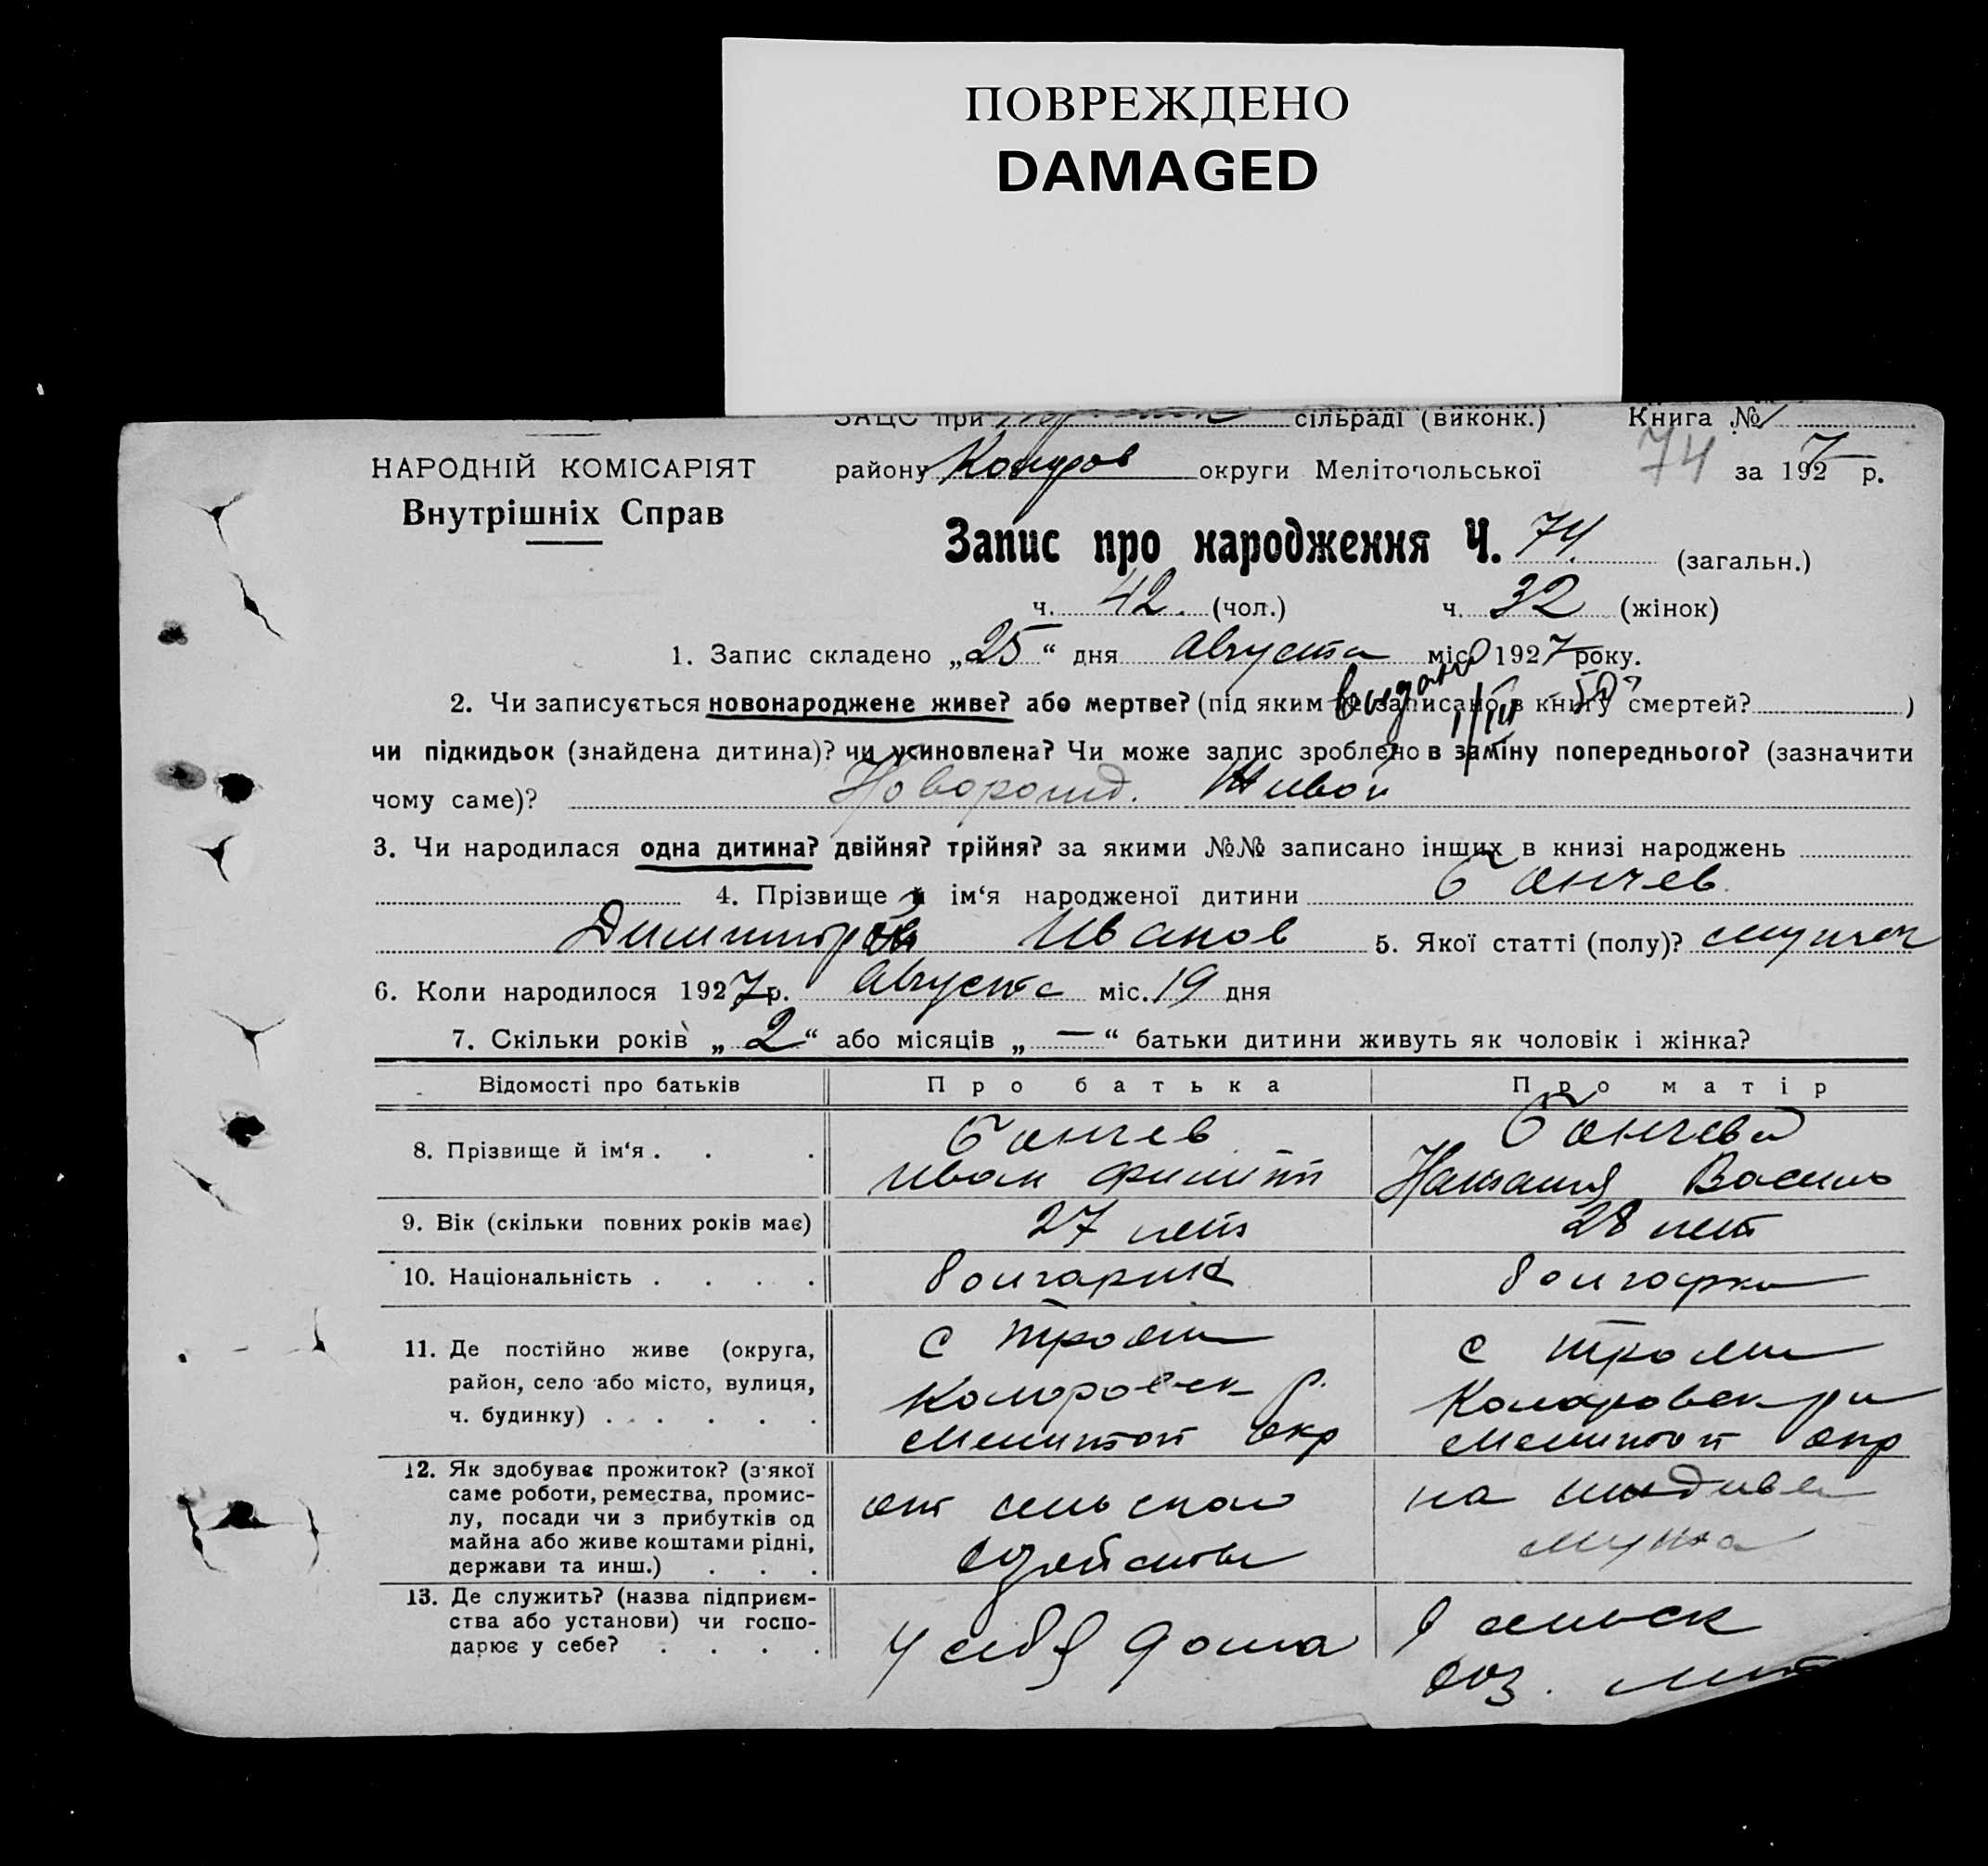 ПОВРЕЖДЕНО
DAMAGED
ЗАЦС при сільраді (виконк.) Книга № 1
НАРОДНІЙ КОМІСАРІЯТ
району округи Мелітопольської 74 за 1927 р.
Внутрішніх Справ
Запис про народження Ч. 74 (загальн.)
ч. 42 (чол.) ч. 32 (жінок)
1. Запис складено „25“ дня Августа міс 1927 року.
2. Чи записується новонароджене живе? або мертве? (під яким записано в книгу смертей? )
чи підкидьок (знайдена дитина)? чи усиновлена? Чи може запис зроблено в заміну попереднього? (зазначити
чому саме)?Новорожд. Живой
3. Чи народилася одна дитина? двійня? трійня? за якими №№ записано інших в книзі народжень
4. Прізвище й ім‘я народженої дитини Банчев
Димитров Иванов 5. Якої статті (полу)?
6. Коли народилося 1927 р. Августа міс. 19 дня
7. Скільки років „2“ або місяців „—“ батьки дитини живуть як чоловік і жінка?
Відомості про батьків Про батька Про матір
8. Прізвище й ім‘я . . . Банчев Банчева
Иван Филипп Наталия Василь
9. Вік (скільки повних років має) 27 лет 28 лет
10. Національність . . . . болгарин болгарка
11. Де постійно живе (округа,
район, село або місто, вулиця,
ч. будинку) . . . . . .
с Трояни с Трояни
Коларовск р. Коларовск рн
Мелитоп окр Мелитоп окр
12. Як здобуває прожиток? (з якої
саме роботи, ремества, промис-
лу, посади чи з прибутків од
майна або живе коштами рідні,
держави та инш.) . . .
от сельского на иждивен
хозяйства мужа
13. Де служить? (назва підприєм-
ства або установи) чи госпо-
дарює у себе? . . . .
у себя дома в сельск
хоз.